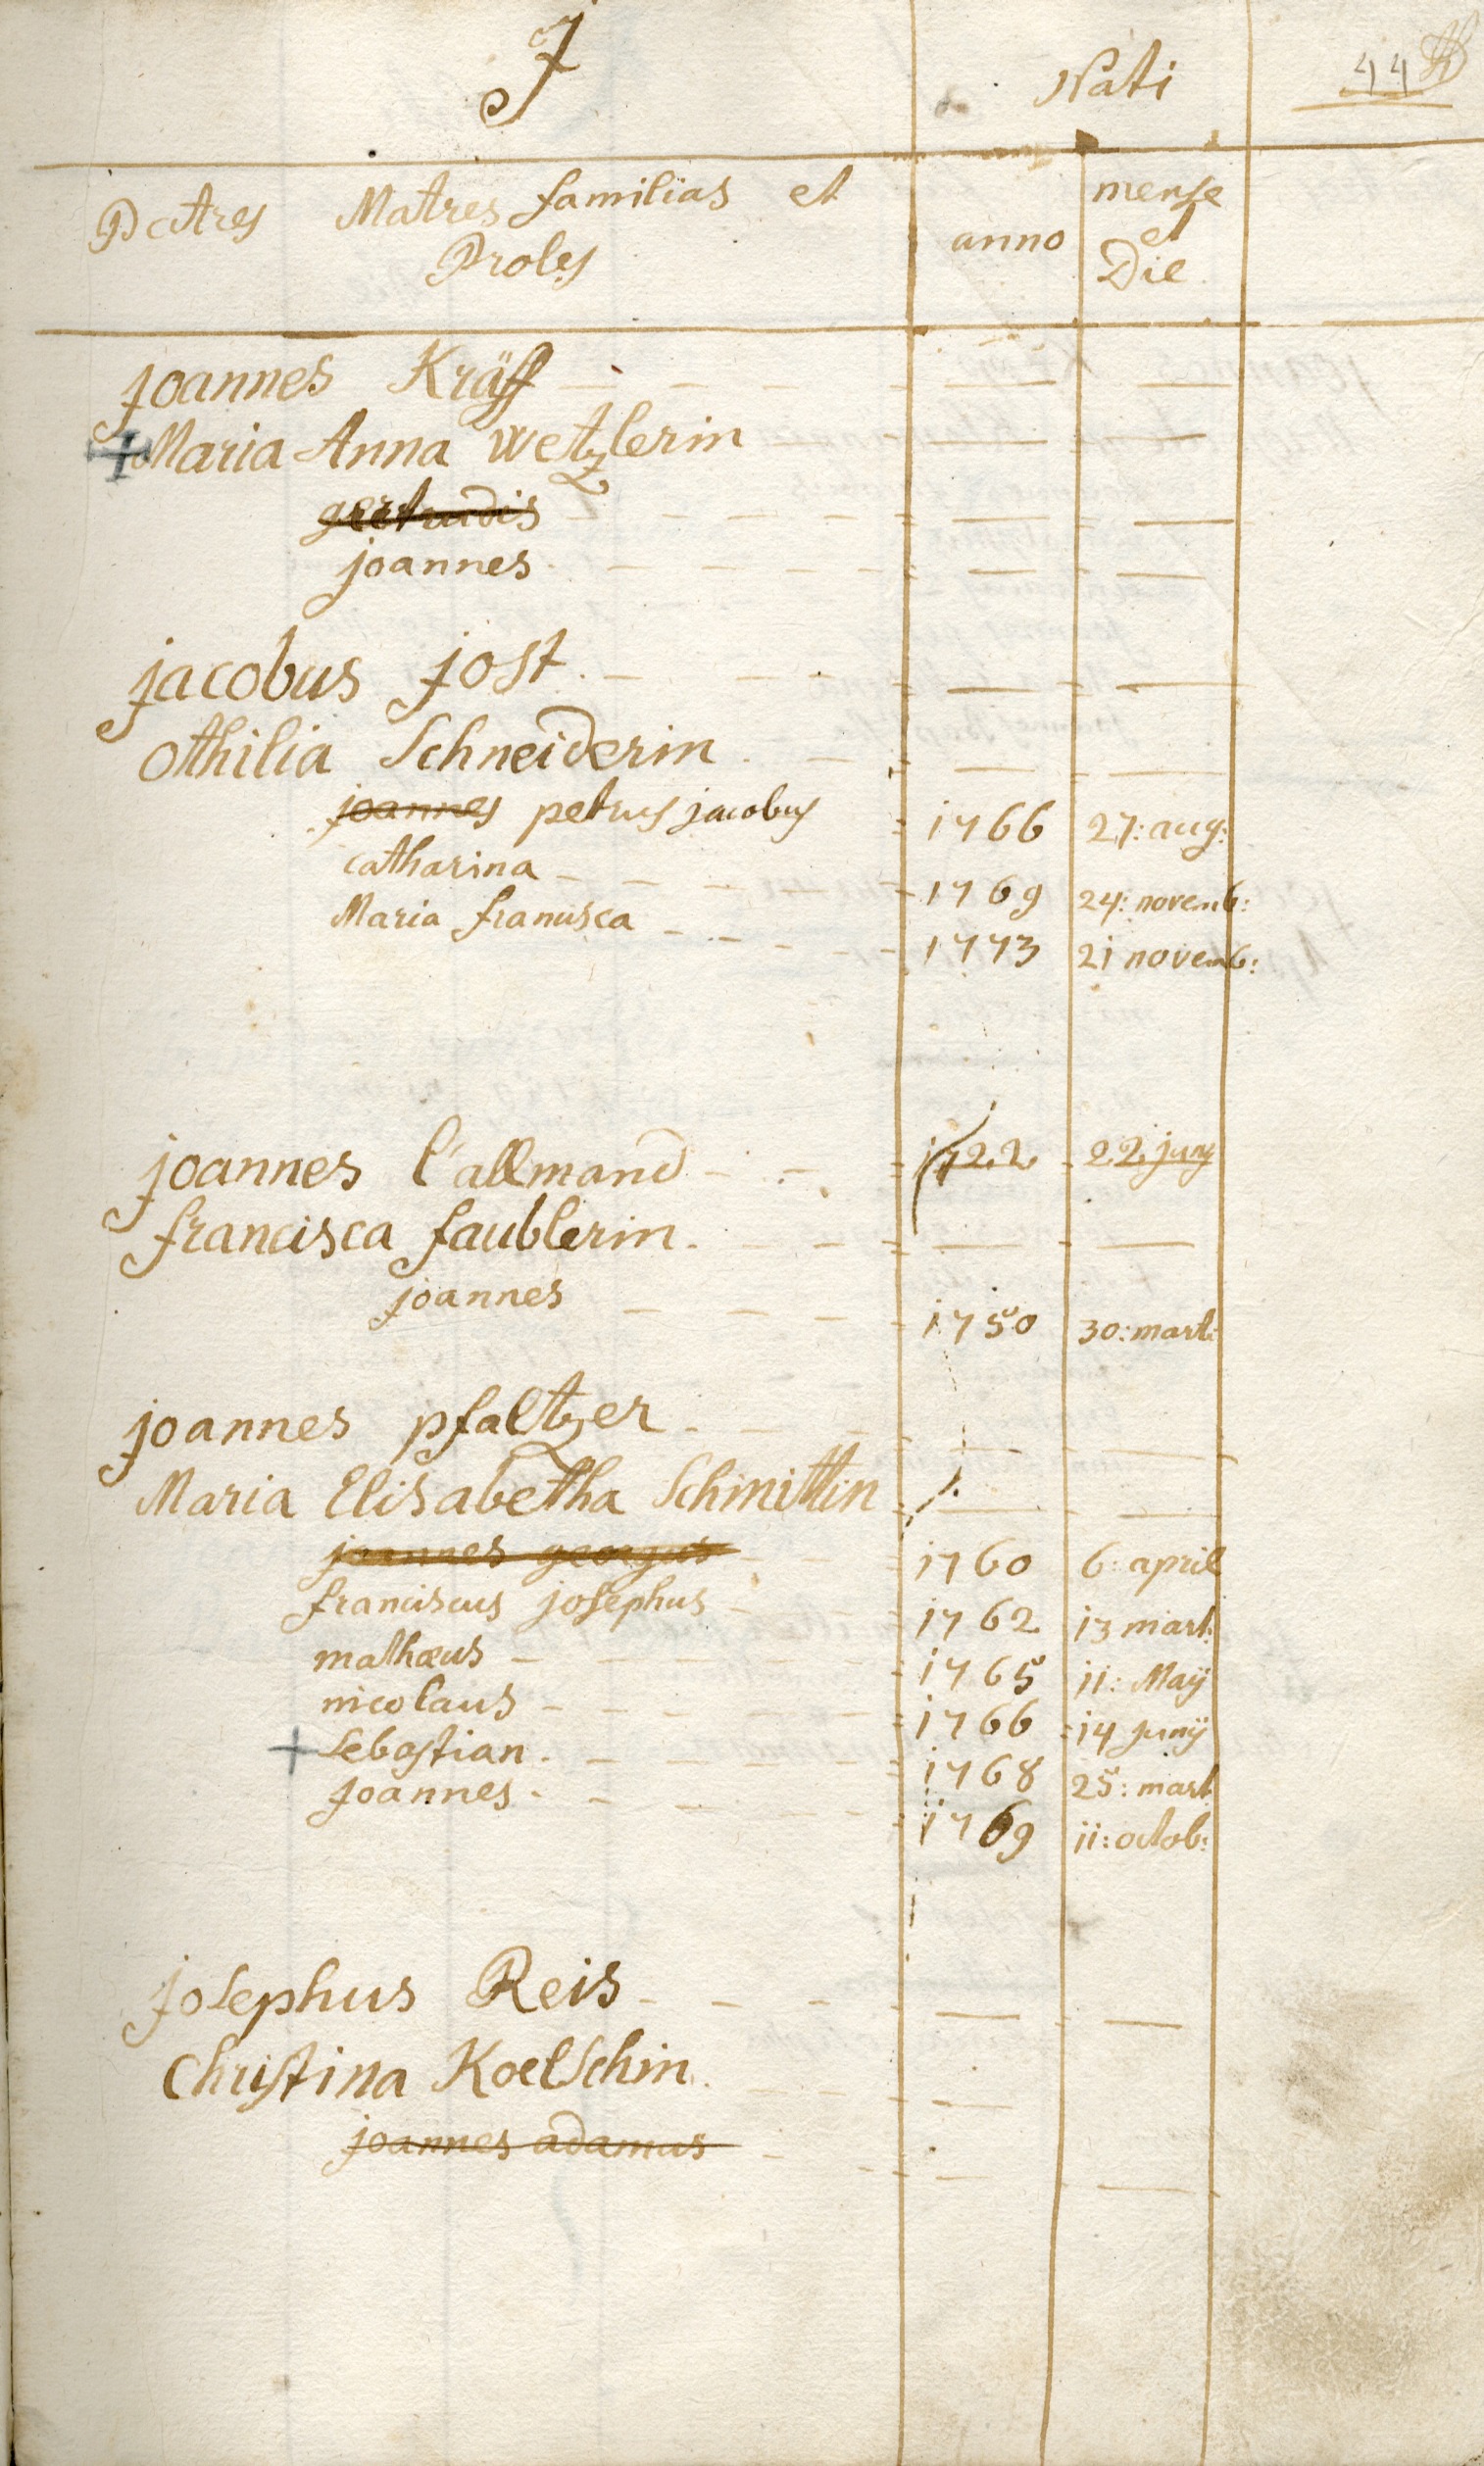 J
Nati
44
Patres Matres familias et
Proles
anno
mense
et
Die
joannes Kräff
+ Maria Anna Wetzlerin
gertrudis
joannes
jacobus jost
othilia Schneiderin
joannes petrus jacobus 1766 27: aug:
catharina 1769 24: novemb:
Maria francisca 1773 21 novemb:
joannes l'allmand 1722 22 juny
francisca faublerin
joannes 1750 30: mart:
joannes pfaltzer
Maria Elisabetha Schmittin
joannes georgius 1760 6: april
franciscus josephus 1762 13 mart:
mathæus 1765 11: Maÿ
nicolaus 1766 14 junÿ
+ Sebastian 1768 25: mart:
joannes 1769 11: octob:
josephus Reis
Christina Koelschin
joannes adamus